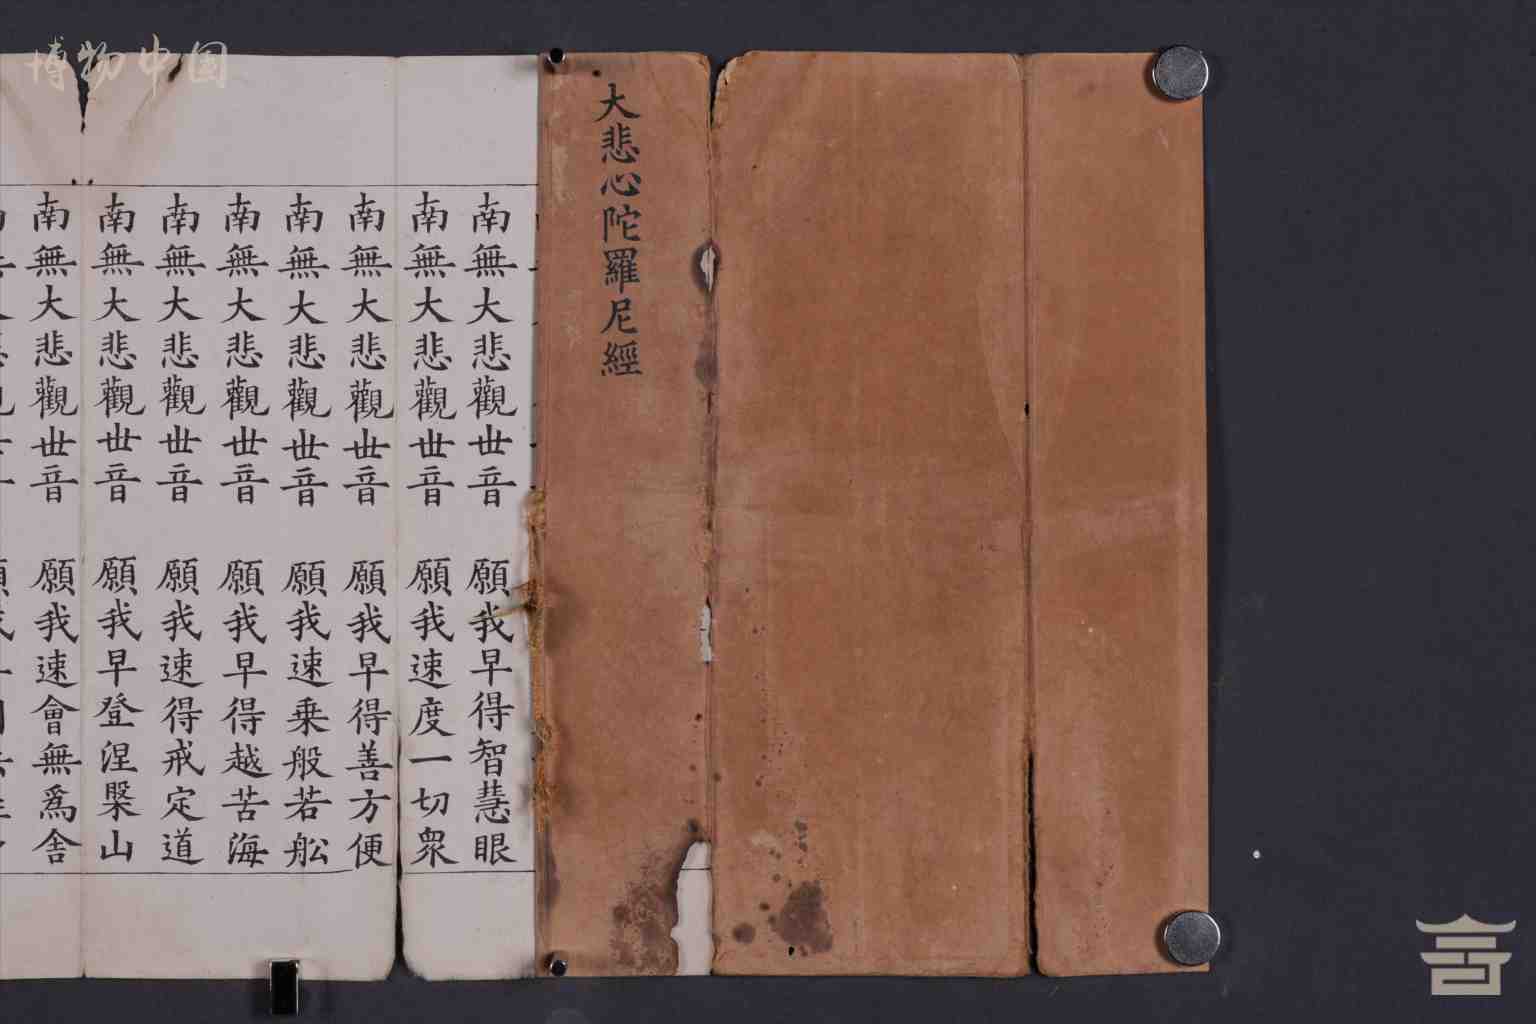 博物中国
大悲心陀羅尼經
南無大悲觀世音 願我早得智慧眼
南無大悲觀世音 願我速度一切眾
南無大悲觀世音 願我早得善方便
南無大悲觀世音 願我速乗般若舩
南無大悲觀世音 願我早得越苦海
南無大悲觀世音 願我速得戒定道
南無大悲觀世音 願我早登涅槃山
南無大悲觀世音 願我速會無爲舎